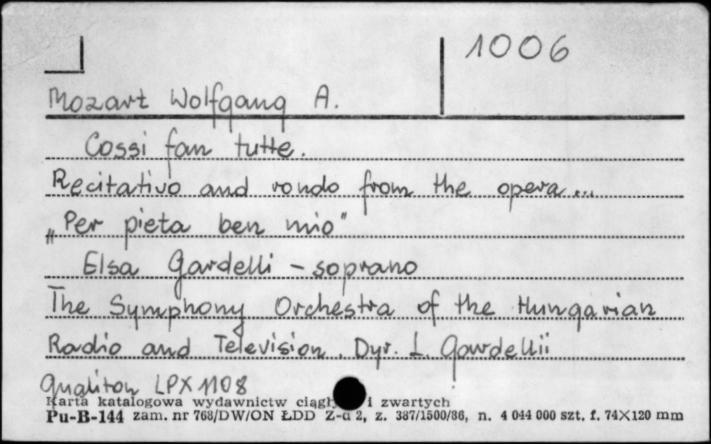 1006
Mozart Wolfgang A.
Cossi fan tutte.
Recitativo and rondo from the opera...
„Per pieta ben mio"
Elsa Gardelli - soprano
The Symphony Orchestra of the Hungarian
Radio and Television. Dyr. L. Gardellii
Qualiton LPX 1108
Karta katalogowa wydawnictw i zwartych
Pu-B-144 zam. nr 768/DW/ON ŁDD Z-d 2, z. 387/1500/86, n. 4 044 000 szt. f. 74×120 mm